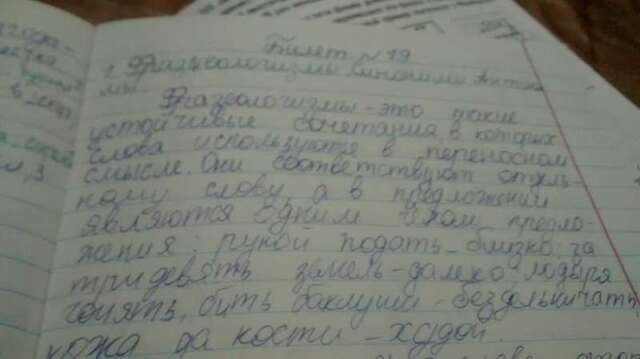 Билет №19
1. Фразеологизмы. Синонимы. Антони
мы
Фразеологизмы - это такие
устойчивые сочетания, в которых
слова используются в переносном
смысле. Они соответствуют отдель-
ному слову, а в предложении
являются одним членом предло-
жения: рукой подать - близко; за
тридевять земель - далеко; лодыря
гонять, бить баклуши - бездельничать,
кожа да кости - худой.